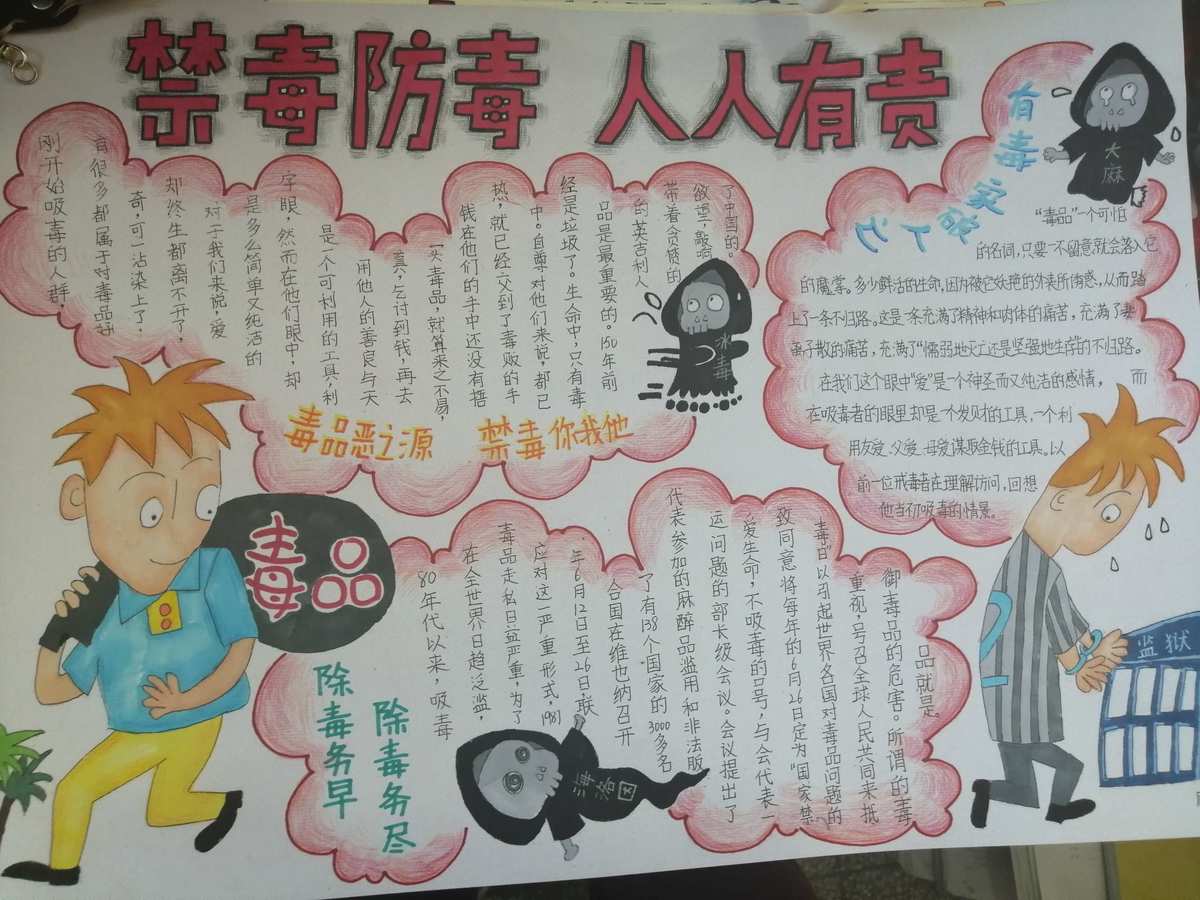 禁毒防毒 人人有责
刚开始吸毒的人群，
有很多都属于对毒品好
奇，可一沾染上了，
却终生都离不开了，
对于我们来说，爱
是多么简单又纯洁的
字眼，然而在他们眼中，却
是一个可利用的工具，利
用他人的善良与天
真，乞讨到钱，再去
买毒品，就算来之不易，
钱在他们的手中还没有捂
热，就已经交到了毒贩的手
中。自尊对他们来说，都已
经是垃圾了。生命中，只有毒
品是最重要的。150年前
的英吉利人
带着贪婪的
欲望，敲响
了中国的。
冰毒
毒品恶之源 禁毒你我他
有毒家破
亡人亡
大麻
“毒品”一个可怕
的名词，只要一不留意就会落入它
的魔掌。多少鲜活的生命，因为被它妖艳的外表所诱惑，从而踏
上了一条不归路。这是一条充满了精神和肉体的痛苦，充满了妻
离子散的痛苦，充满了“懦弱地灭亡还是坚强地生存的不归路。
在我们这个眼中“爱”是一个神圣而又纯洁的感情， 而
在吸毒者的眼里却是一个发财的工具，一个利
用友爱、父爱、母爱谋取金钱的工具。以
前一位戒毒者在理解访问，回想
他当初吸毒的情景。
毒品
除毒务早
除毒务尽
80年代以来，吸毒
在全世界日趋泛滥，
毒品走私日益严重，为了
应对这一严重形式，1987
年6月12日至26日，联
合国在维也纳召开
了有138个国家的3000多名
代表参加的麻醉品滥用和非法贩
运问题的部长级会议。会议提出了
爱生命，不吸毒的口号，与会代表一
致同意将每年的6月26日定为“国家禁
毒日”以引起世界各国对毒品问题的
重视，号召全球人民共同来抵
御毒品的危害。所谓的毒
品就是。
海洛因
监狱